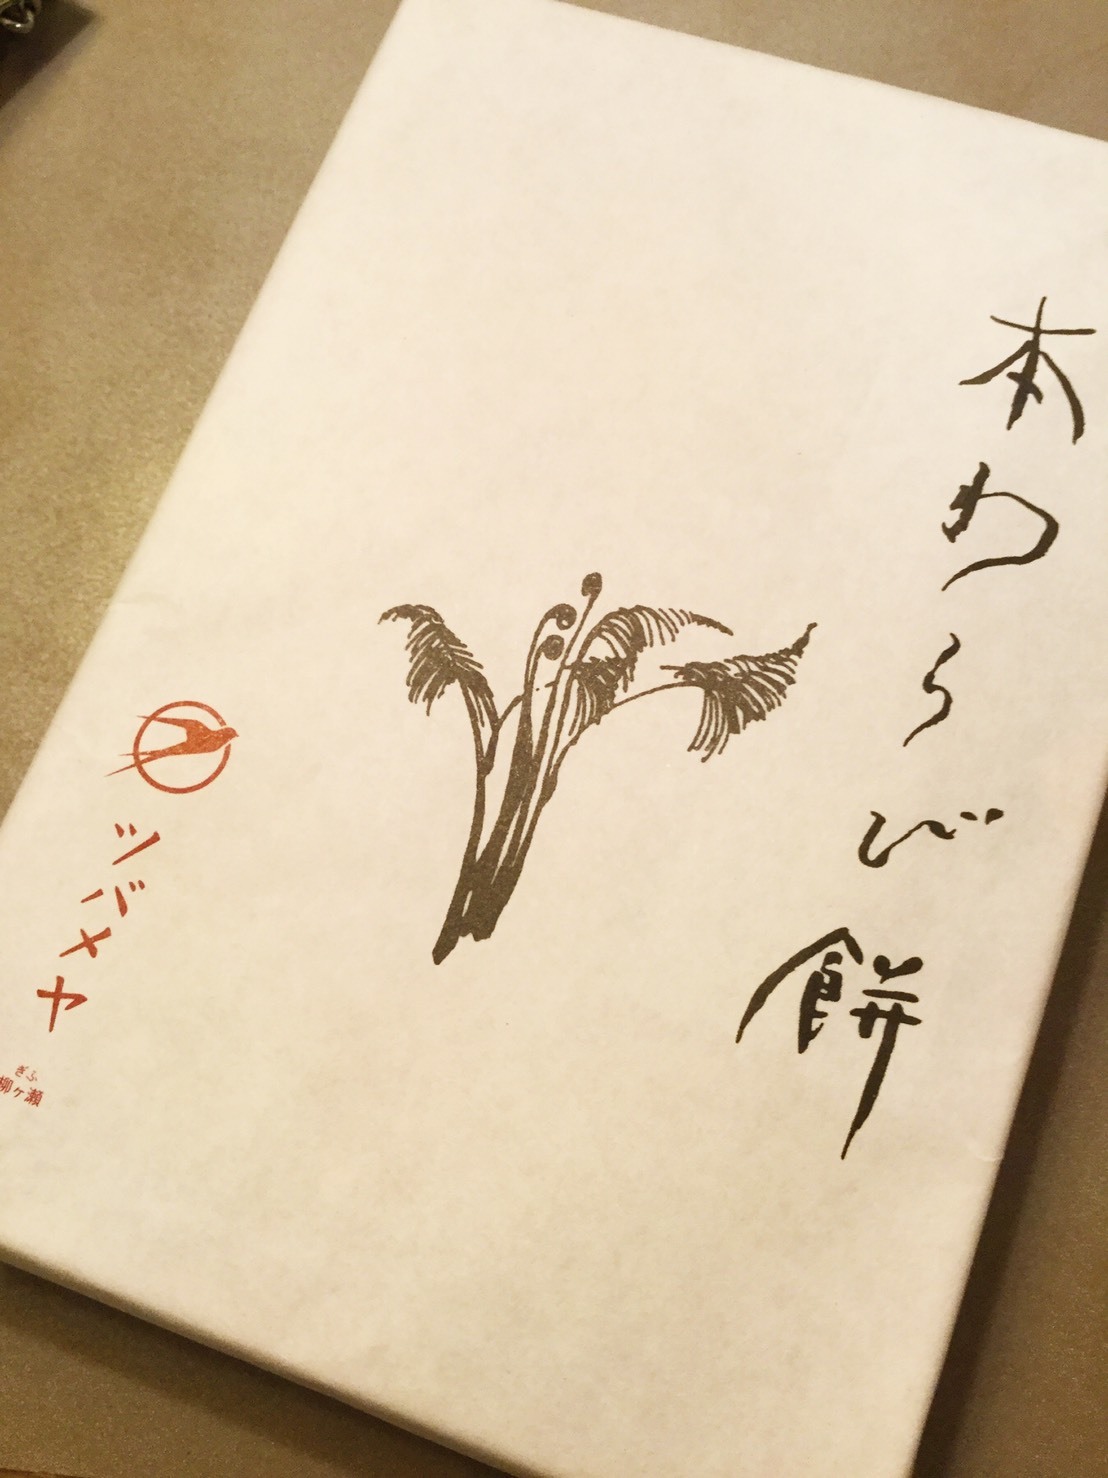 本わらび餅
ツバメヤ
ぎふ
柳ヶ瀬